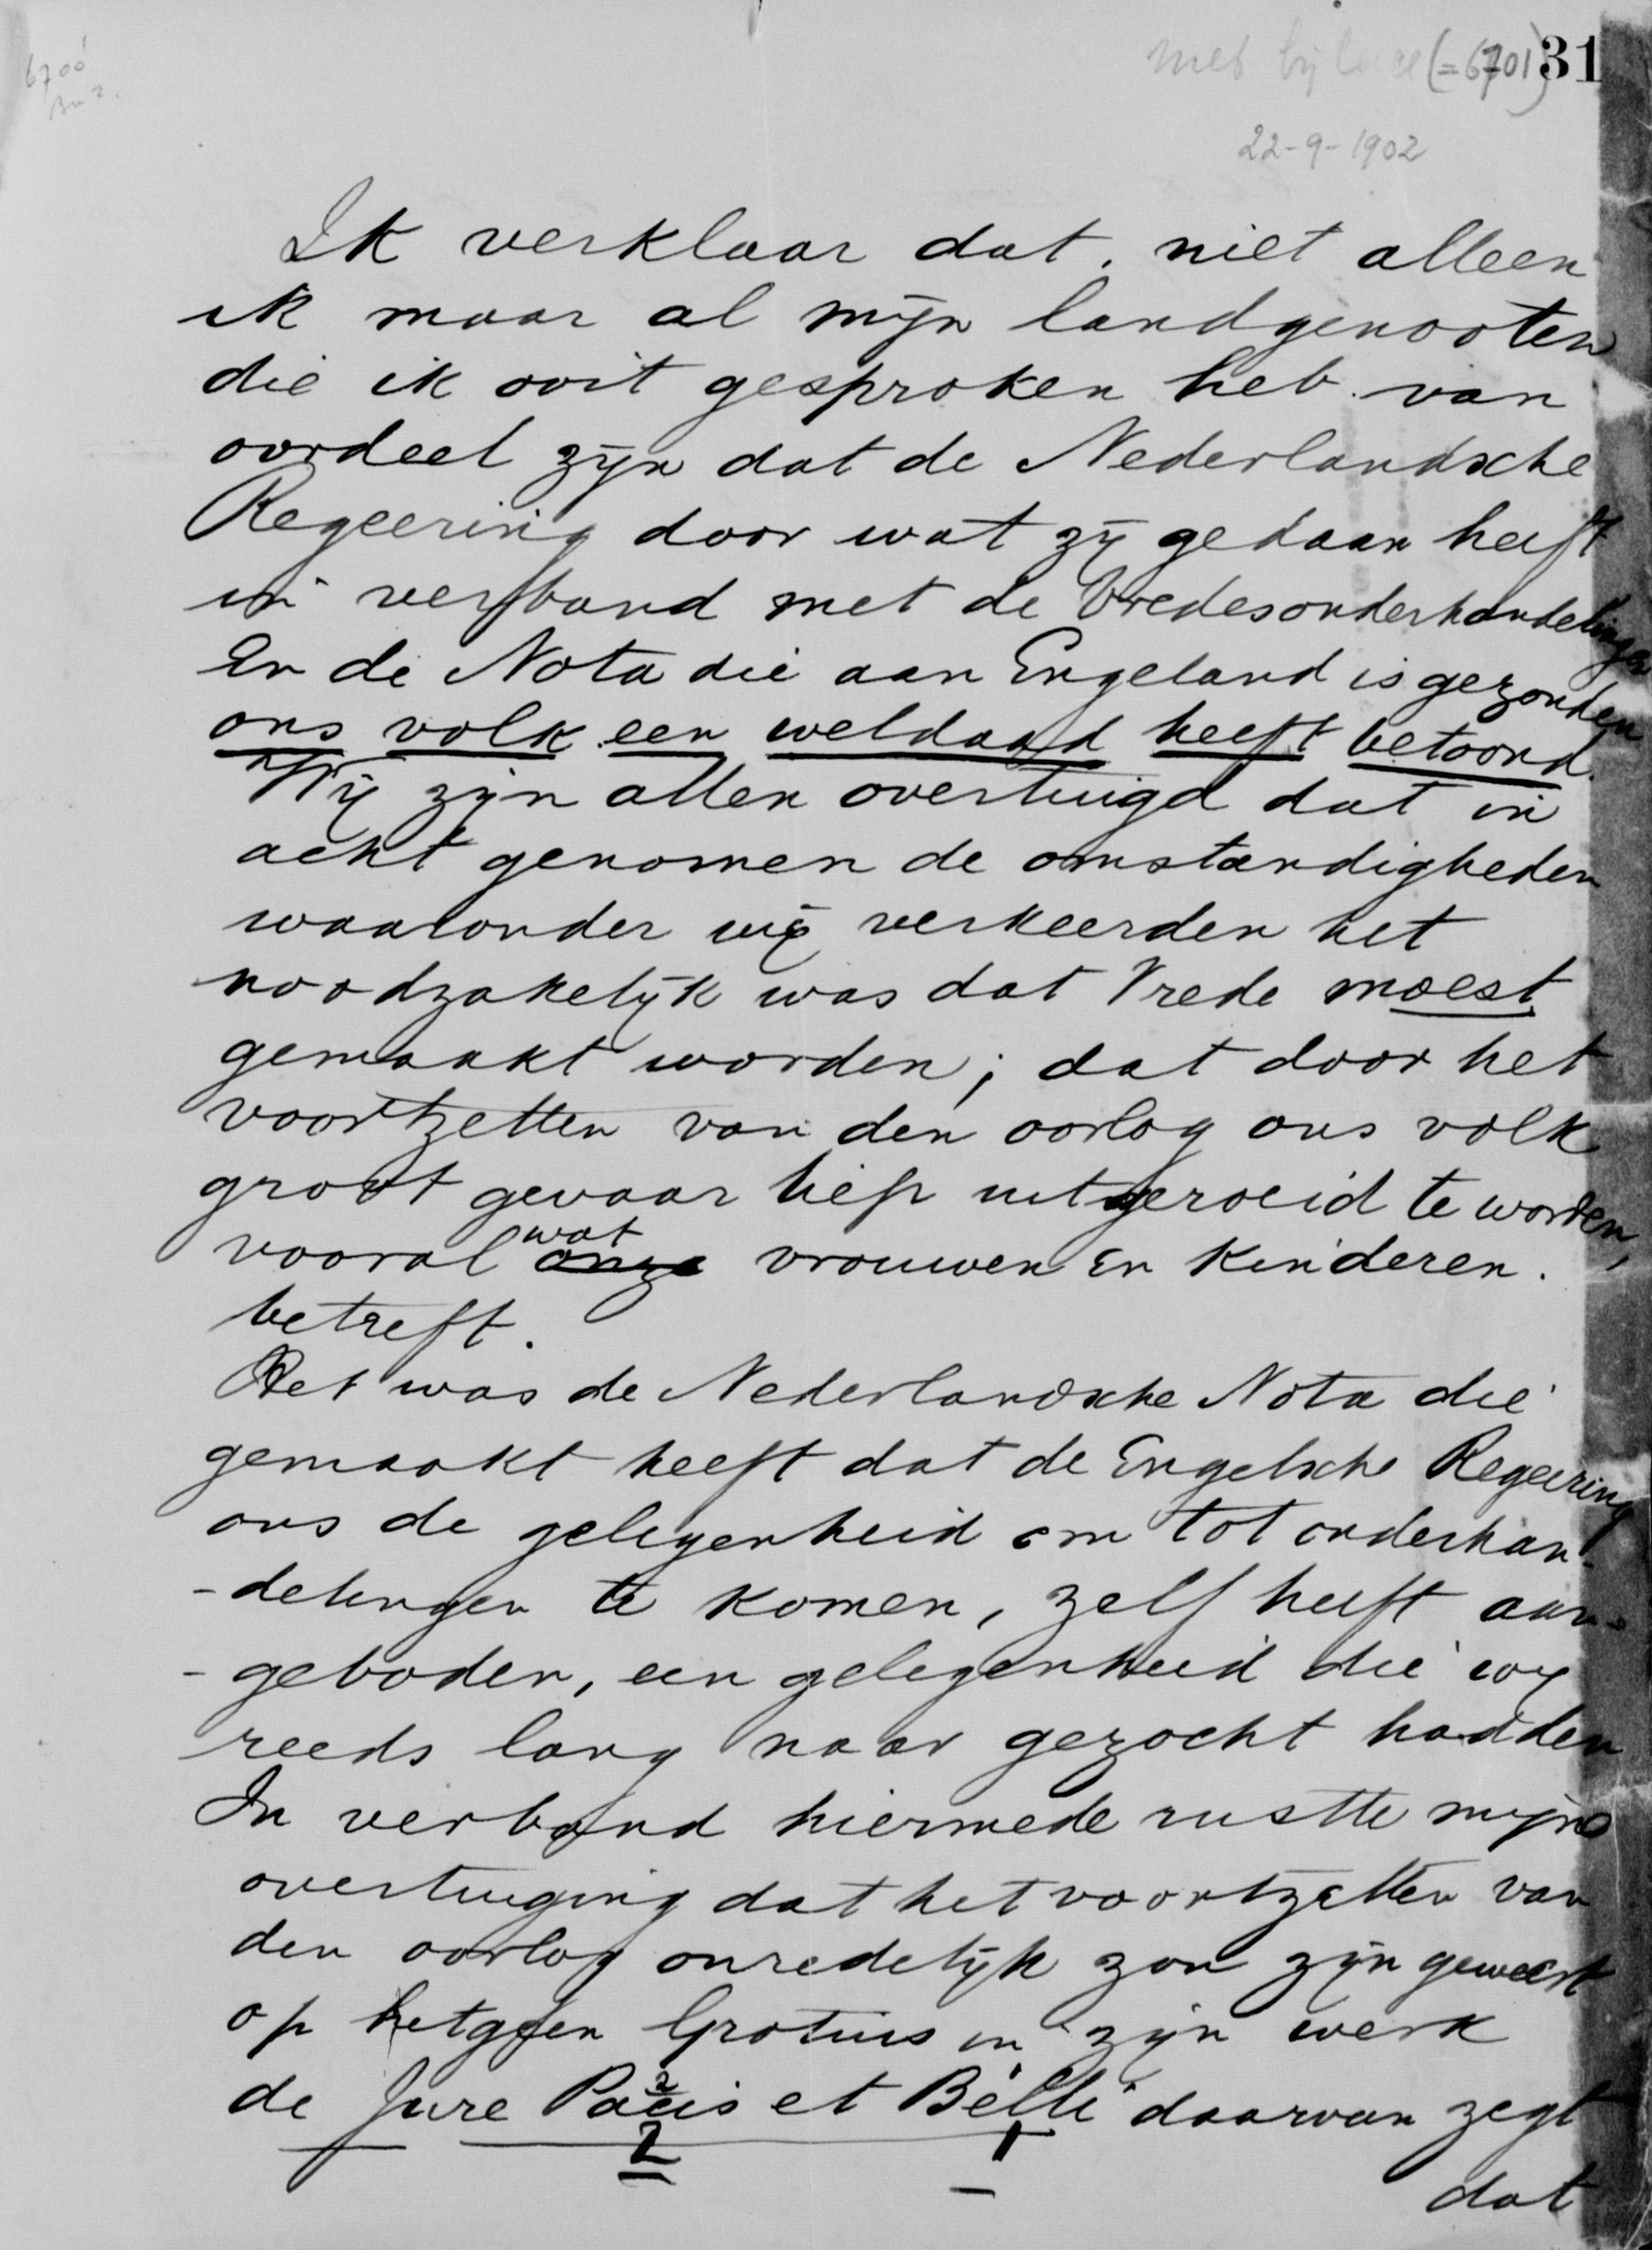 6700
met bijlage (=6701) 31
22-9-1902
Ik verklaar dat. niet alleen
ik maar al mijn landgenooten
die ik ooit gesproken heb van
oordeel zijn dat de Nederlandsche
Regeering door wat zij gedaan heeft
in verband met de Vredesonderhandelingen
En de Nota die aan Engeland is gezonden
ons volk een weldaad heeft betoond.
Wij zijn allen overtuigd dat in
acht genomen de omstandigheden
waaronder wij verkeerden het
noodzakelijk was dat Vrede moest
gemaakt worden; dat door het
voortzetten van den oorlog ons volk
groot gevaar liep uitgeroeid te worden,
vooral wat onze vrouwen en kinderen.
betreft.
Het was de Nederlandsche Nota die
gemaakt heeft dat de Engelsche Regeering
ons de gelegenheid om tot onderhan-
-delingen te komen, zelf heeft aan-
-geboden, een gelegenheid die wij
reeds lang naar gezocht hadden
In verband hiermede rustte mijne
overtuiging dat het voortzetten van
den oorlog onredelijk zou zijn geweest
op hetgeen Grotius in zijn werk
de Jure Pacis et Belli daarvan zegt
2 1
dat